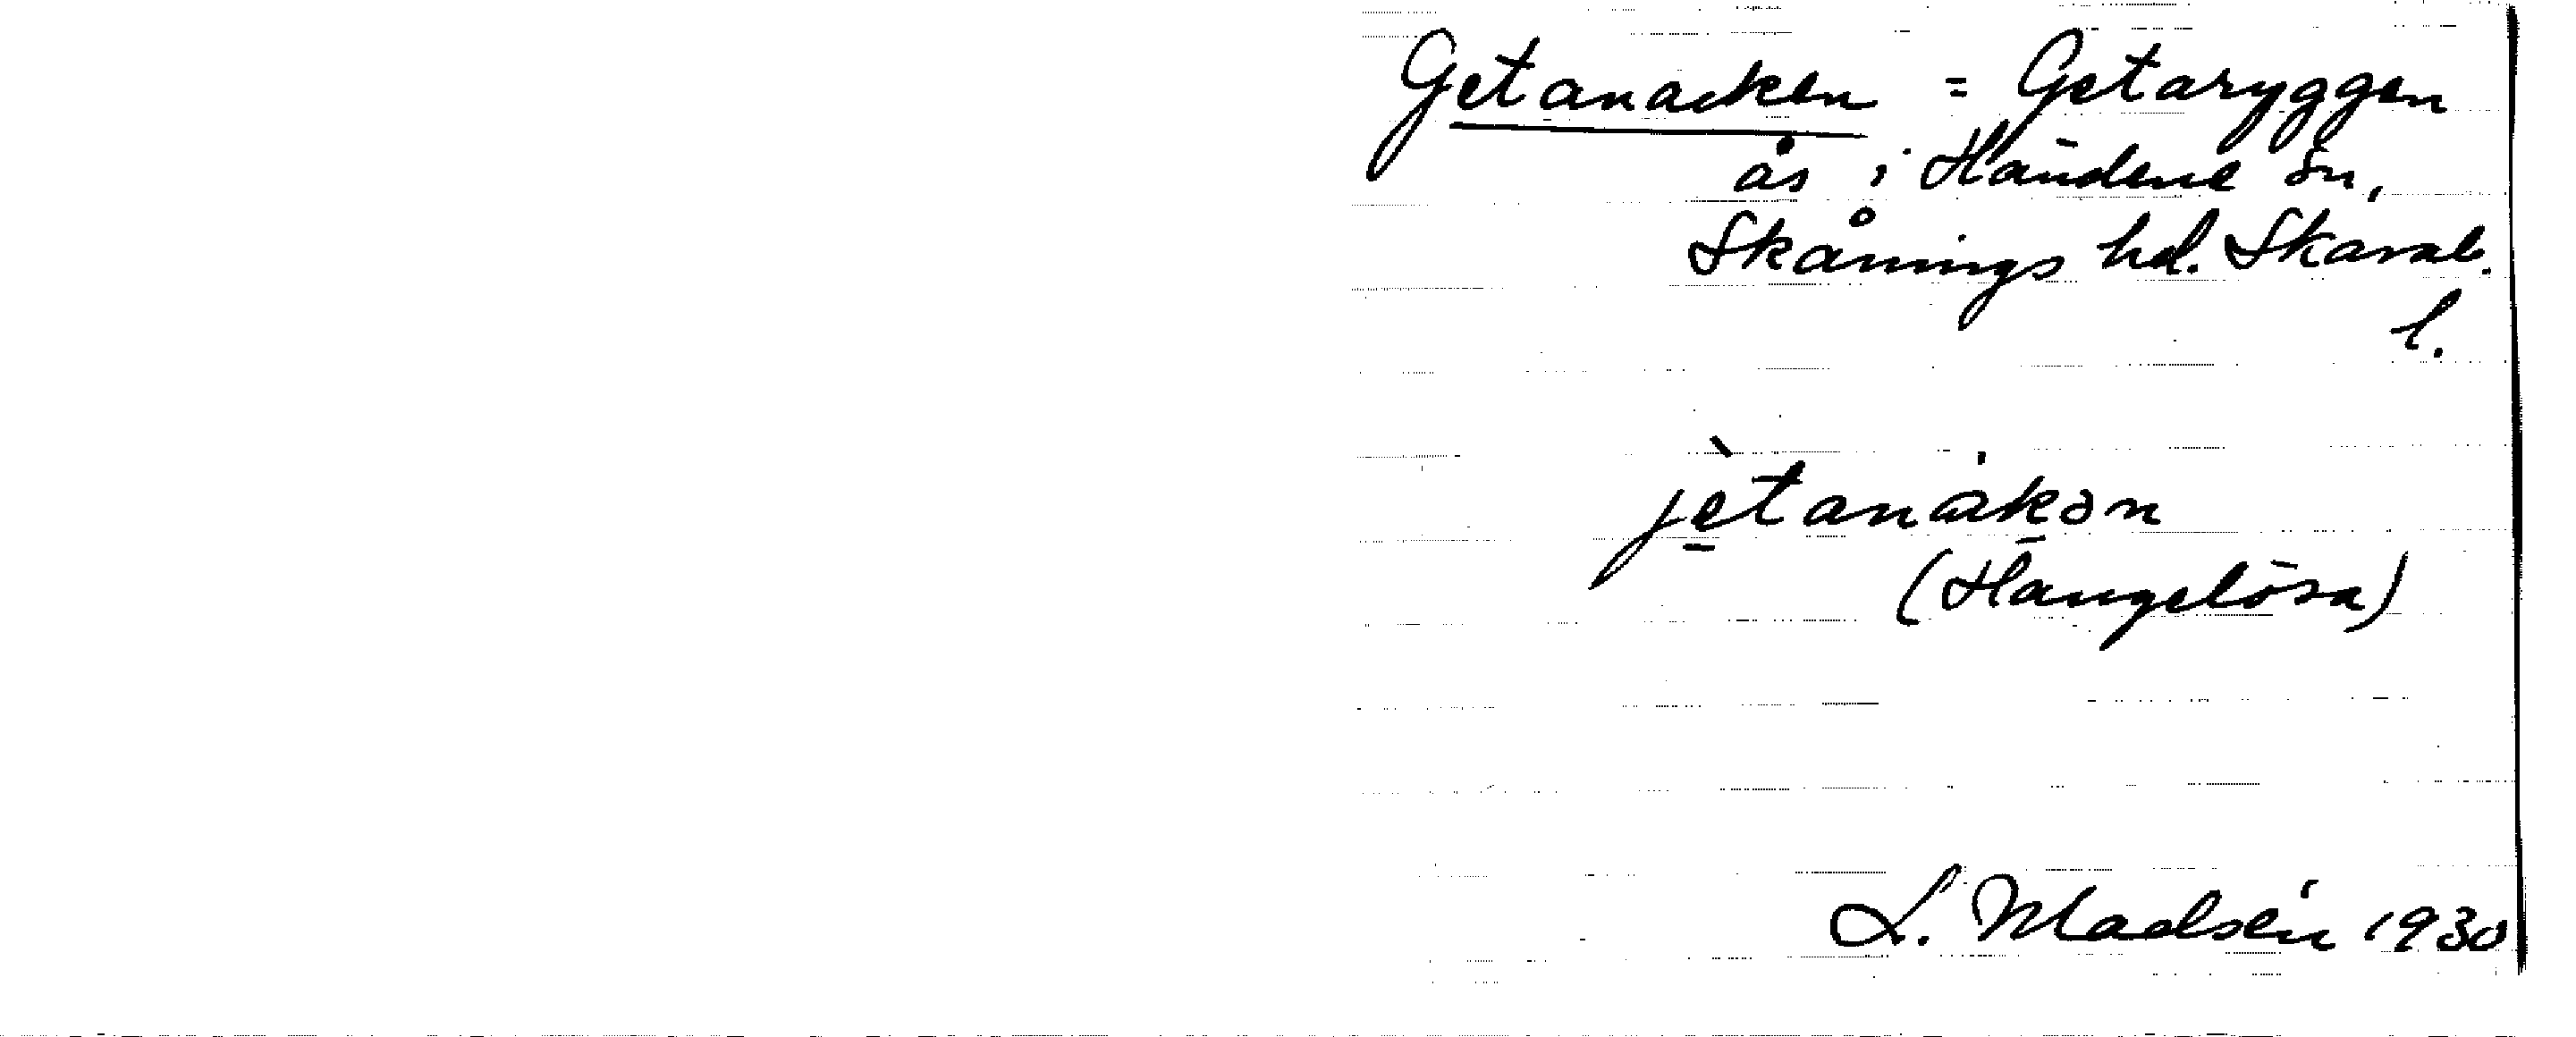 Getanacken = Getaryggen
ås i Händene sn,
Skånings hd. Skarab.
l.
jètanakən
(Hängelösa)
L. Madsén 1930